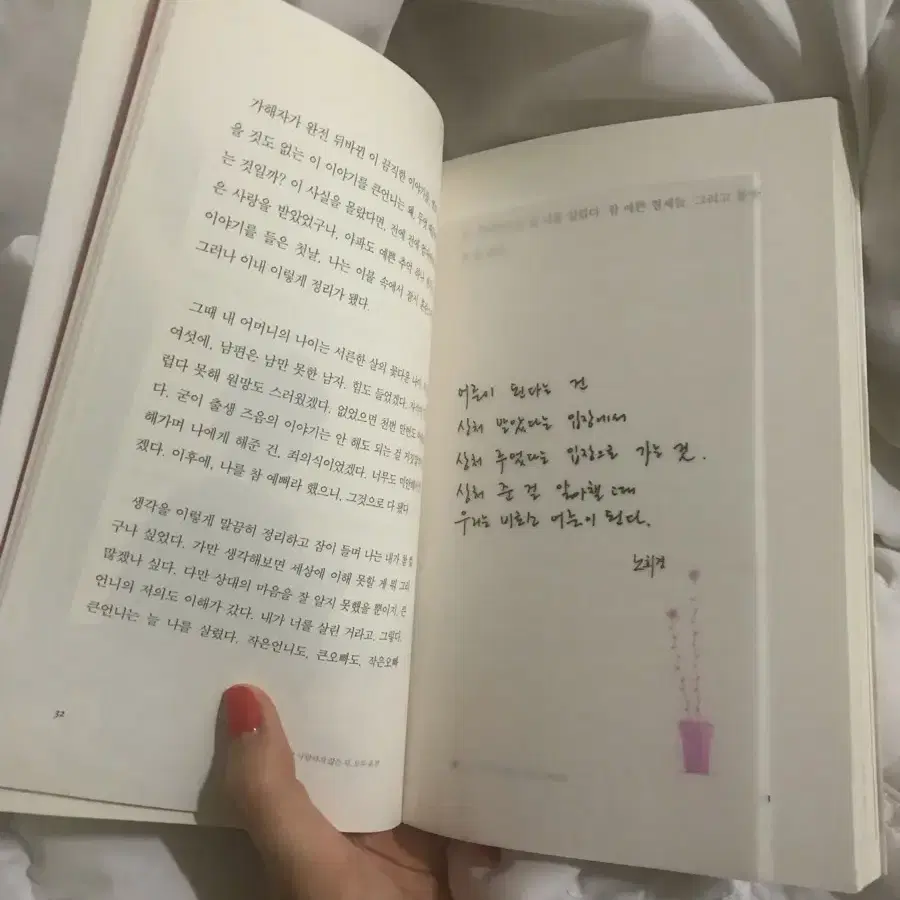 가해자가 완전 뒤바뀐 이 끔직한 이야기를,
을 것도 없는 이 이야기를 큰언니는 왜, 무어
는 것일까? 이 사실을 몰랐다면, 전에 전에
은 사랑을 받았었구나, 아파도 예쁜 추억 하나
이야기를 들은 첫날, 나는 이불 속에서 잠시
그러나 이내 이렇게 정리가 됐다.
그때 내 어머니의 나이는 서른한 살의 꽃다운
여섯에, 남편은 남만 못한 남자. 힘도 들었겠다.
럽다 못해 원망도 스러웠겠다. 없었으면 천번 만번도
다. 굳이 출생 즈음의 이야기는 안 해도 되는 걸
해가며 나에게 해준 건, 죄의식이었겠다. 너무도
겠다. 이후에, 나를 참 예뻐라 했으니, 그것으로 다 됐다
생각을 이렇게 말끔히 정리하고 잠이 들며 나는 내가
구나 싶었다. 가만 생각해보면 세상에 이해 못할 게 뭐 그리
많겠나 싶다. 다만 상대의 마음을 잘 알지 못했을 뿐이지. 큰
언니의 저의도 이해가 갔다. 내가 너를 살린 거라고. 그렇다.
큰언니는 늘 나를 살렸다. 작은언니도, 큰오빠도, 작은오빠
32
유죄
나를 살렸다. 참 예쁜 형제들, 그리고
어른이 된다는 건
상처 받았다는 입장에서
상처 주었다는 입장으로 가는 것.
상처 준 걸 알아챌 때
우리는 비로소 어른이 된다.
노희경